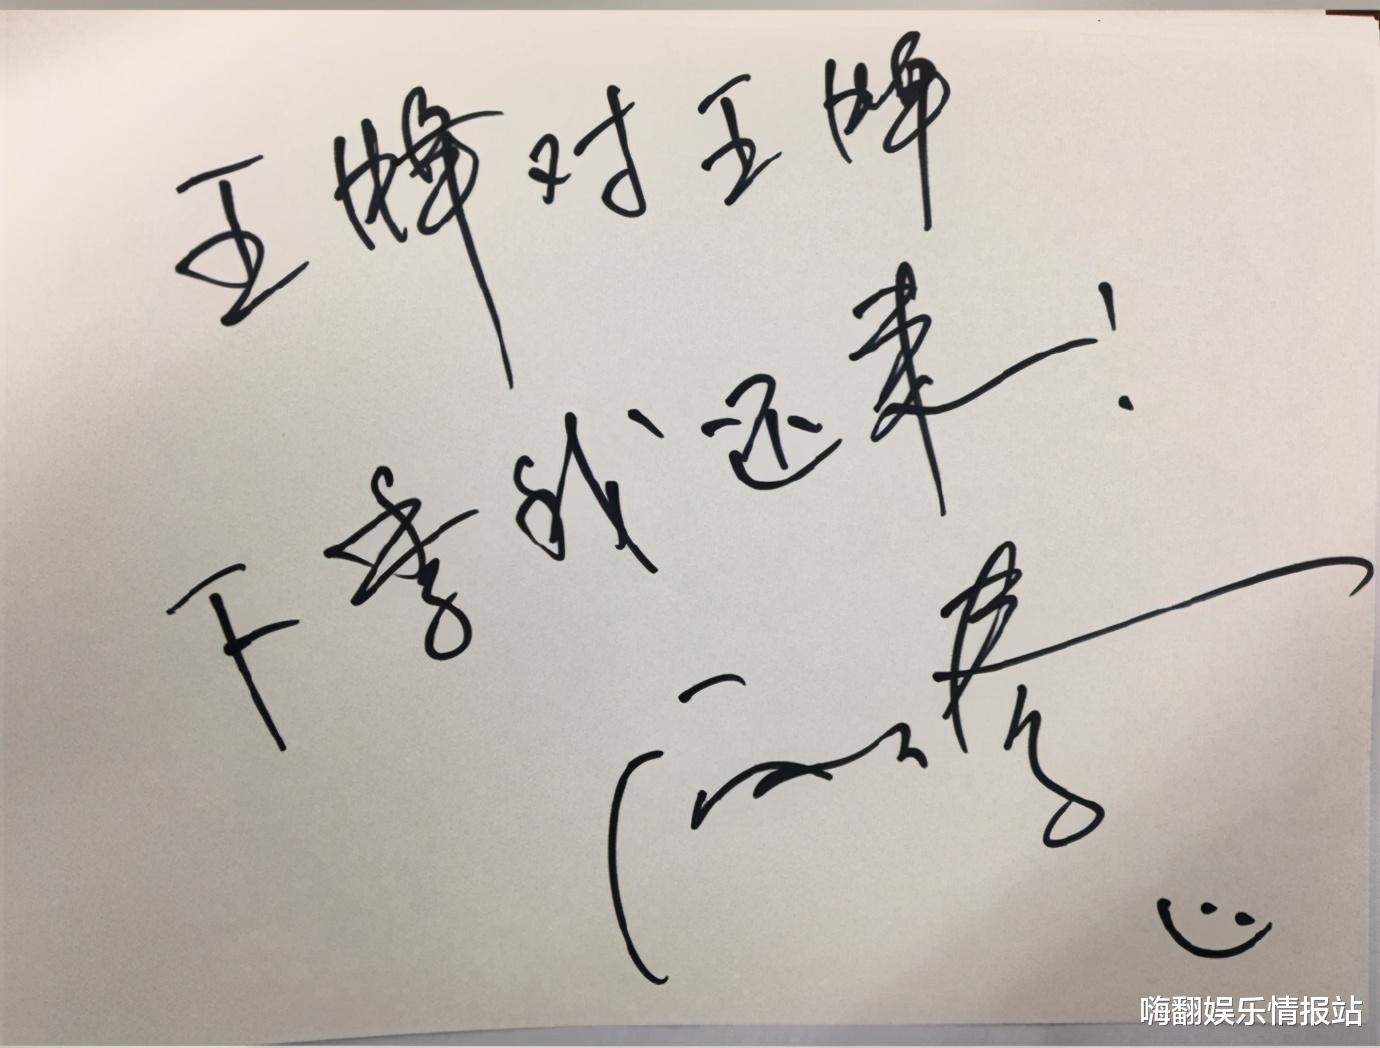 王牌对王牌
下季我还来!
嗨翻娱乐情报站